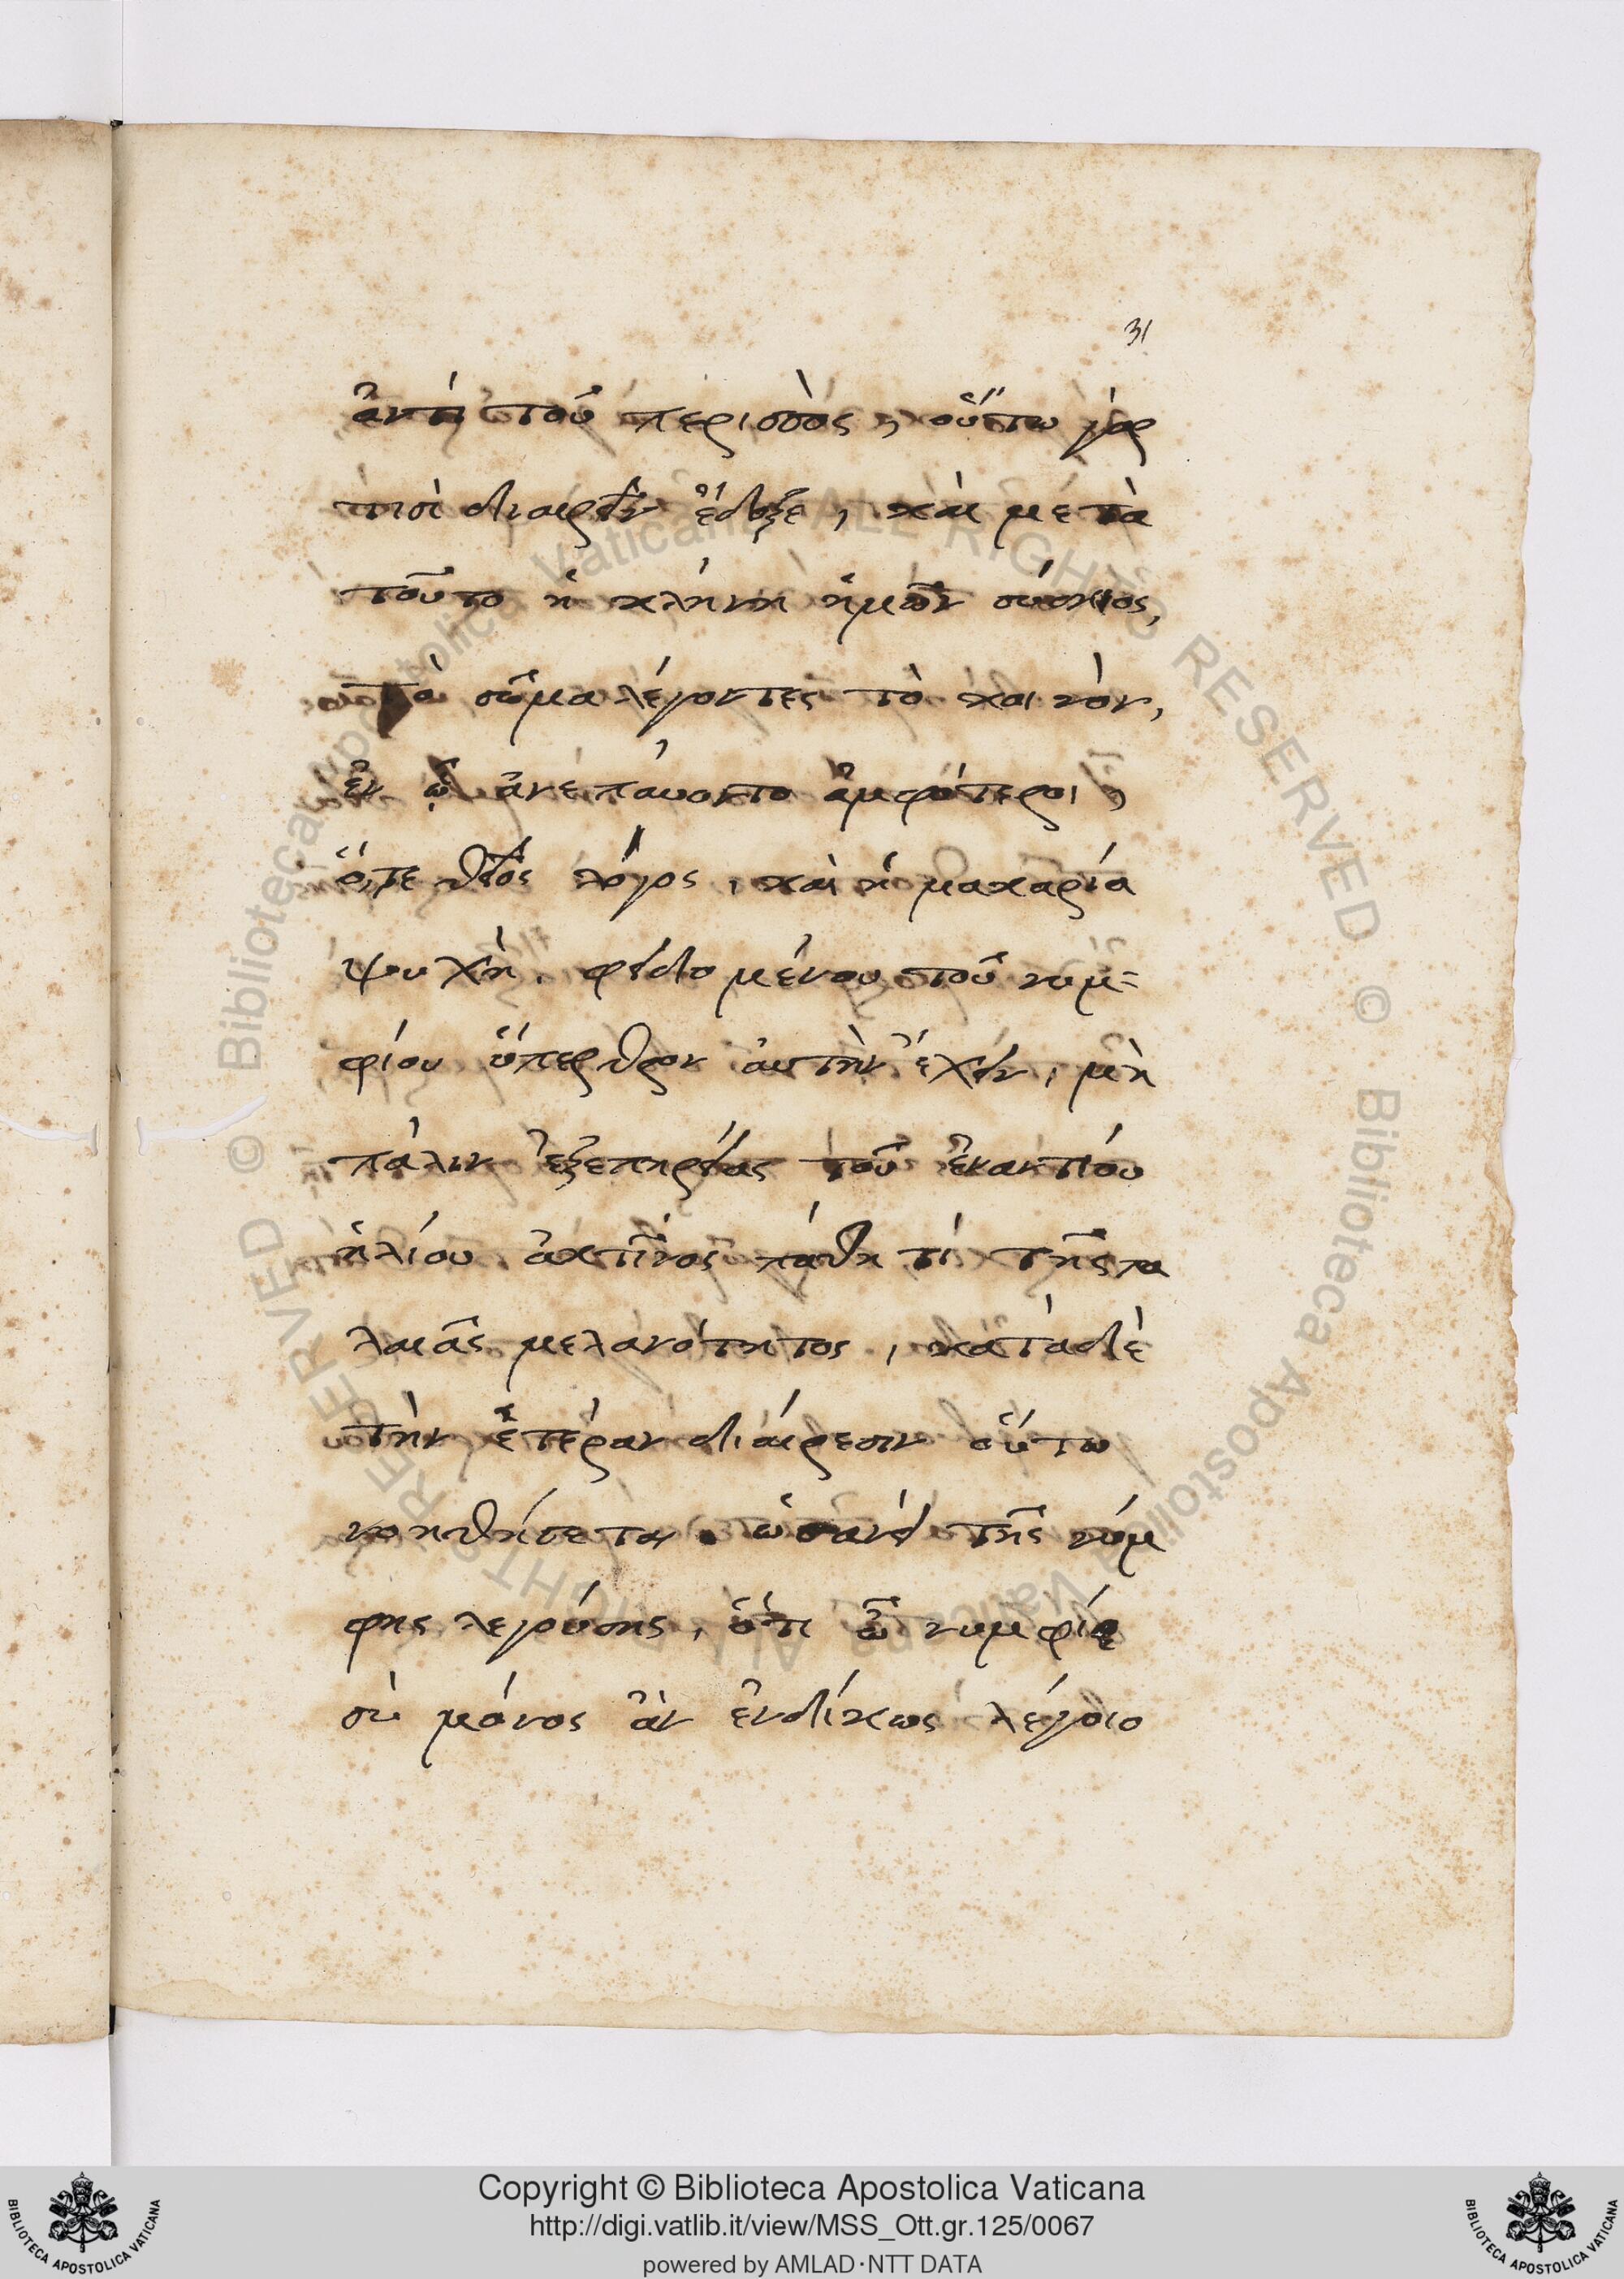 31
ἀντὶ τοῦ περισσὸς, οὕτω γὰρ
τισὶ διαιρεῖν ἔδοξε, καὶ μετὰ
τοῦτο ἡ κλήνη ἡμῶν σύσκιος,
τὸ σῶμα λέγοντες τὸ καινὸν,
ἐν ᾧ ἀνεπαύοντο ἀμφότεροι,
ὅ,τε θεῖος λόγος, καὶ ἡ μακαρία
ψυχὴ. φειδομένου τοῦ νυμ=
φίου ὕπερθρον αὐτὴν ἔχειν, μὴ
πάλιν ἐξεπηρείας τοῦ ἐναντίου
ἡλίου ἀκτῖνος πάθη τί τῆς πα
λαιᾶς μελανότητος, κατὰ δὲ
τὴν ἑτέραν διαίρεσιν οὕτω
νοηθήσεται. ὡσανεὶ τῆς νύμ
φης λεγούσης, ὅτι ὦ νυμφίε
σὺ μόνος ἂν ἐνδίκως λέγοιο
Copyright © Biblioteca Apostolica Vaticana
http://digi.vatlib.it/view/MSS_Ott.gr.125/0067
powered by AMLAD·NTT DATA
© Biblioteca Apostolica Vaticana ALL RIGHTS RESERVED
© Biblioteca Apostolica Vaticana ALL RIGHTS RESERVED
BIBLIOTECA APOSTOLICA VATICANA
BIBLIOTECA APOSTOLICA VATICANA